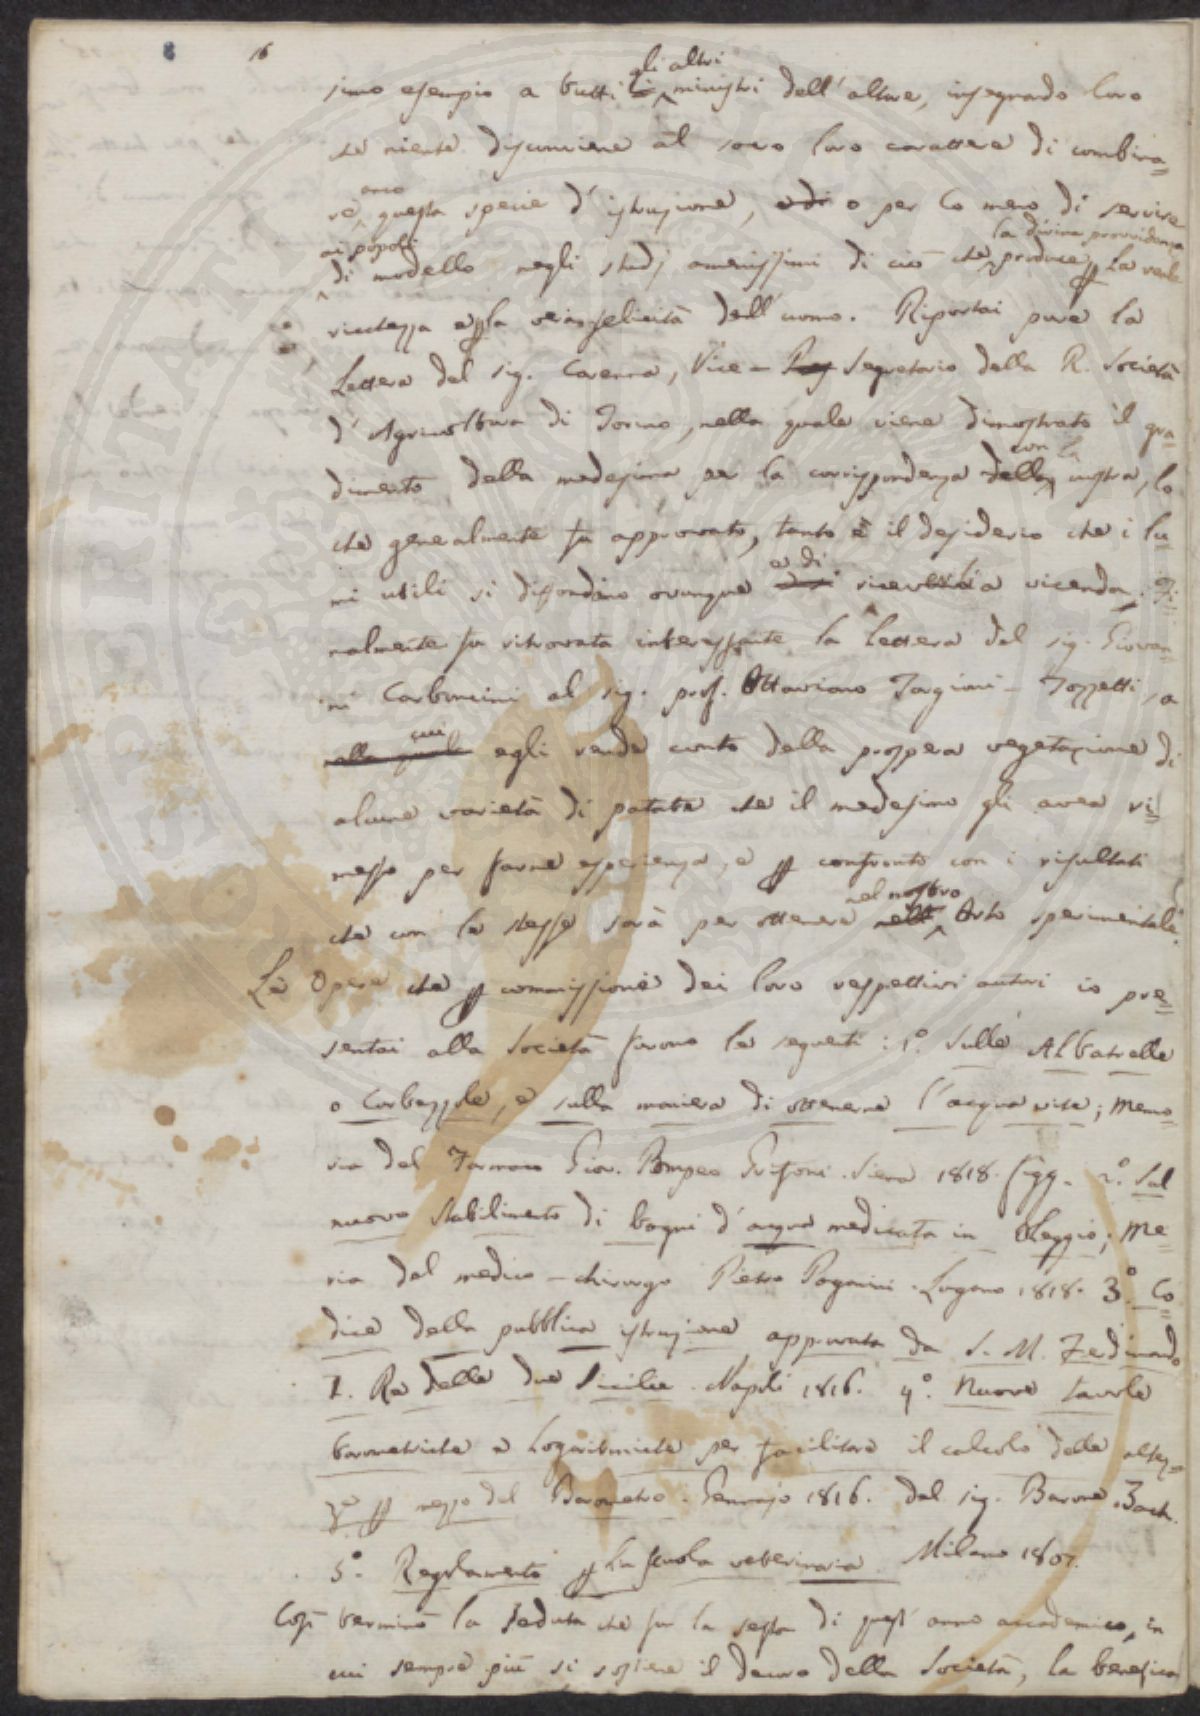 8 16
simo esempio a tutti li gli altri ministri dell'altare, insegnando loro
che niente disconviene al sacro loro carattere di combina=
re anco questa specie d'istruzione, o per lo meno di servire
ai popoli di modello negli studj amenissimi di ciò che la divina provvidenza produce p la reale
ricchezza e p la vera felicità dell'uomo. Riportai pure la
Lettera del sig. Cavenna, Vice= Segretario della R. Società
d'Agricoltura di Torino, nella quale viene dimostrato il gra=
dimento della medesima per la corrispondenza della con la nostra, lo
che generalmente fu approvato, tanto è il desiderio che i lu=
mi utili si diffondino ovunque e di a vicenda. Fi=
nalmente fu ritrovata interessante la lettera del sig. Giovan=
ni Carboncini al sig. prof. Ottaviano Targioni=Tozzetti, a
alla quale cui egli rende conto della prospera vegetazione di
alcune varietà di patate che il medesimo gli avea ri=
messo per farne esperienza, e p confronto con i risultati
che con le stesse sarà per ottenere nell' nel nostro Orto sperimentale.
Le Opere che p commissione dei loro respettivi autori io pre=
sentai alla Società furono le seguenti: 1.° Sulle Albatrelle
o Corbezzole, e sulla maniera di ottenerne l'acqua vite; Memo
ria del Farmaco Giov. Pompeo Grifoni. Siena 1818. figg. 2.° Sul
nuovo stabilimento di bagni d'acqua medicata in Oleggio; Me=
ria del medico=chirurgo Pietro Paganini. Lugano 1818. 3.° Co=
dice della pubblica istruzione approvata da S. M. Ferdinando
I. Re delle due Sicilie. Napoli 1816. 4.° Nuove tavole
barometriche e Logaritmiche per facilitare il calcolo delle altez=
ze p mezzo del Barometro. Gennajo 1816. del sig. Barone Zach.
5.° Regolamento p la scuola veterinaria Milano 1807.
Così terminò la seduta che fu la sesta di quest'anno accademico, in
cui sempre più si sostiene il decoro della Società, la benefica